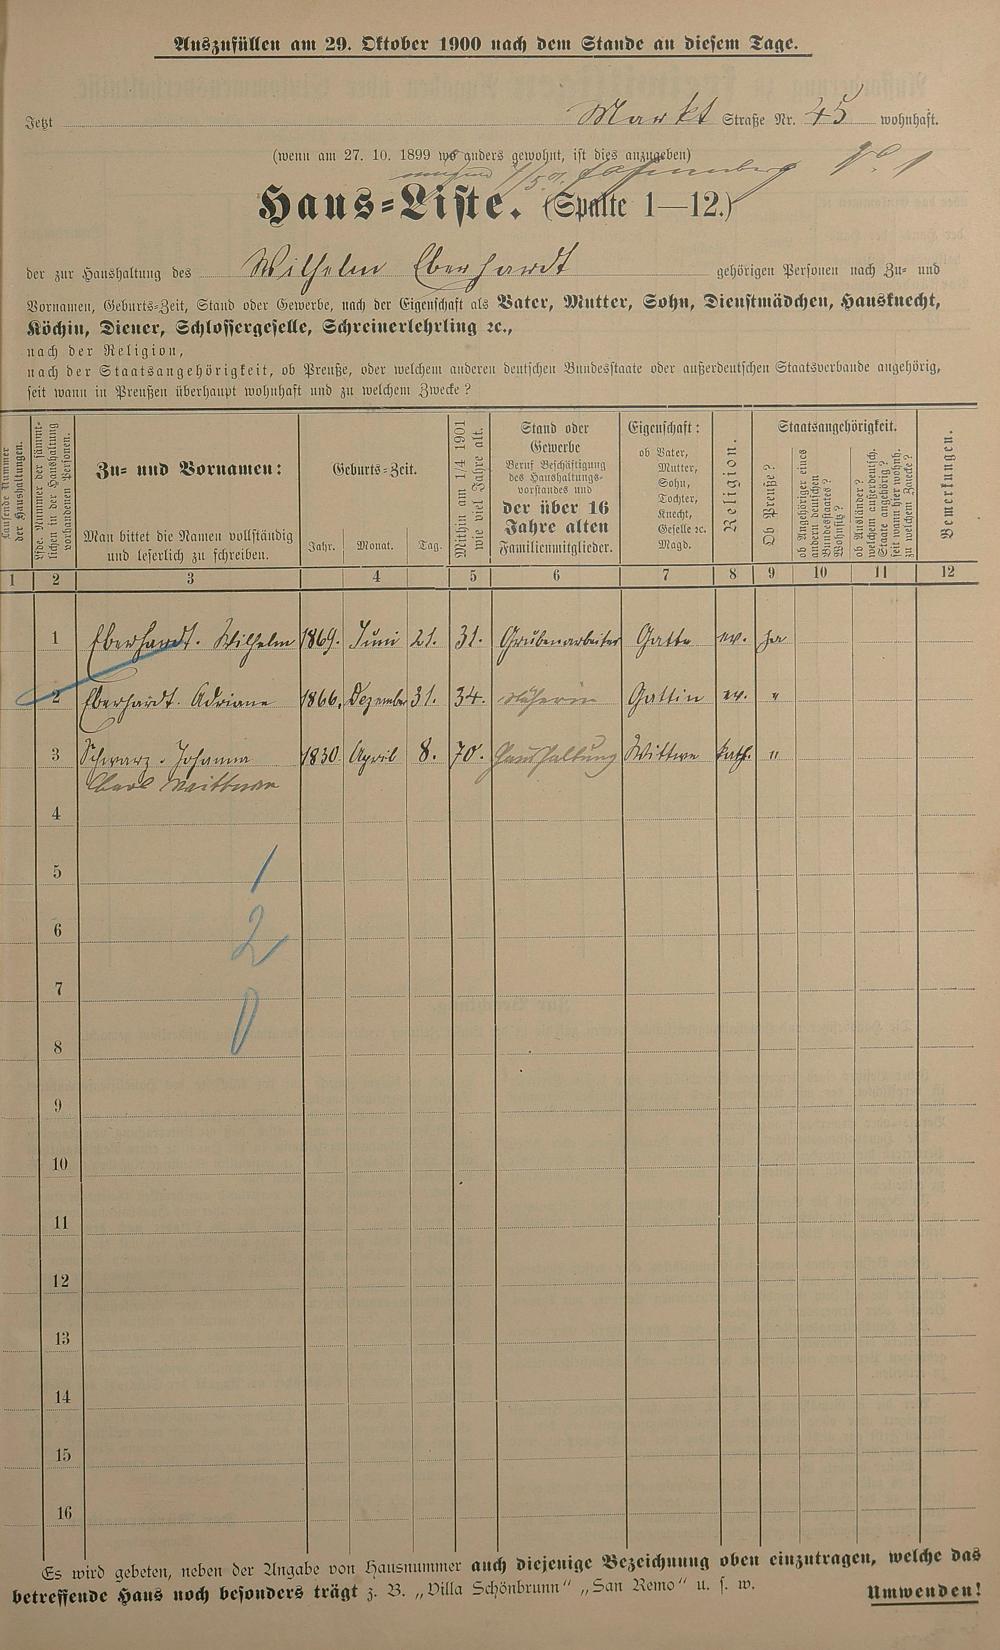 Auszufüllen am 29. Oktober 1900 nach dem Stande an diesem Tage.
Jetzt Markt Straße Nr. 45 wohnhaft.
(wenn am 27. 10. 1899 wo anders gewohnt, ist dies anzugeben)
Haus=Liste. (Spalte 1—12.)
der zur Haushaltung des Wilhelm Eberhardt gehörigen Personen nach Zu- und
Vornamen, Geburts-Zeit, Stand oder Gewerbe, nach der Eigenschaft als Vater, Mutter, Sohn, Dienstmädchen, Hausknecht,
Köchin, Diener, Schlossergeselle, Schreinerlehrling ꝛc.,
nach der Religion,
nach der Staatsangehörigkeit, ob Preuße, oder welchem anderen deutschen Bundesstaate oder außerdeutschen Staatsverbande angehörig,
seit wann in Preußen überhaupt wohnhaft und zu welchem Zwecke?
Laufende Nummer der Haushaltungen.
Lfde. Nummer der sämmtlichen in der Haushaltung vorhandenen Personen.
Zu- und Vornamen:
Man bittet die Namen vollständig
und leserlich zu schreiben.
Geburts-Zeit.
Jahr. Monat. Tag.
Mithin am 1/4 1901
wie viel Jahre alt.
Stand oder
Gewerbe
Beruf Beschäftigung
des Haushaltungs-
vorstandes und
der über 16
Jahre alten
Familienmitglieder.
Eigenschaft:
ob Vater,
Mutter,
Sohn,
Tochter,
Knecht,
Geselle ꝛc.
Magd.
Religion.
Staatsangehörigkeit.
Ob Preuße?
ob Angehöriger eines
andern deutschen
Bundesstaates?
Wohnsitz?
ob Ausländer?
welchem außerdeutsch.
Staate angehörig?
seit wann hier wohnh.
zu welchem Zwecke?
Bemerkungen.
1 2 3 4 5 6 7 8 9 10 11 12
1 Eberhardt. Wilhelm 1869. Juni 21. 31. Grubenarbeiter Gatte ev. ja
2 Eberhardt. Adriane 1866. Dezember 31. 34. Näherin Gattin ev. "
3 Schwarz. Johanna 1830 April 8. 70. Haushaltung Wittwe kath. "
4
5 1
6 2
7
8 0
9
10
11
12
13
14
15
16
Es wird gebeten, neben der Angabe von Hausnummer auch diejenige Bezeichnung oben einzutragen, welche das
betreffende Haus noch besonders trägt z. B. „Villa Schönbrunn" „San Remo" u. s. w. Umwenden!